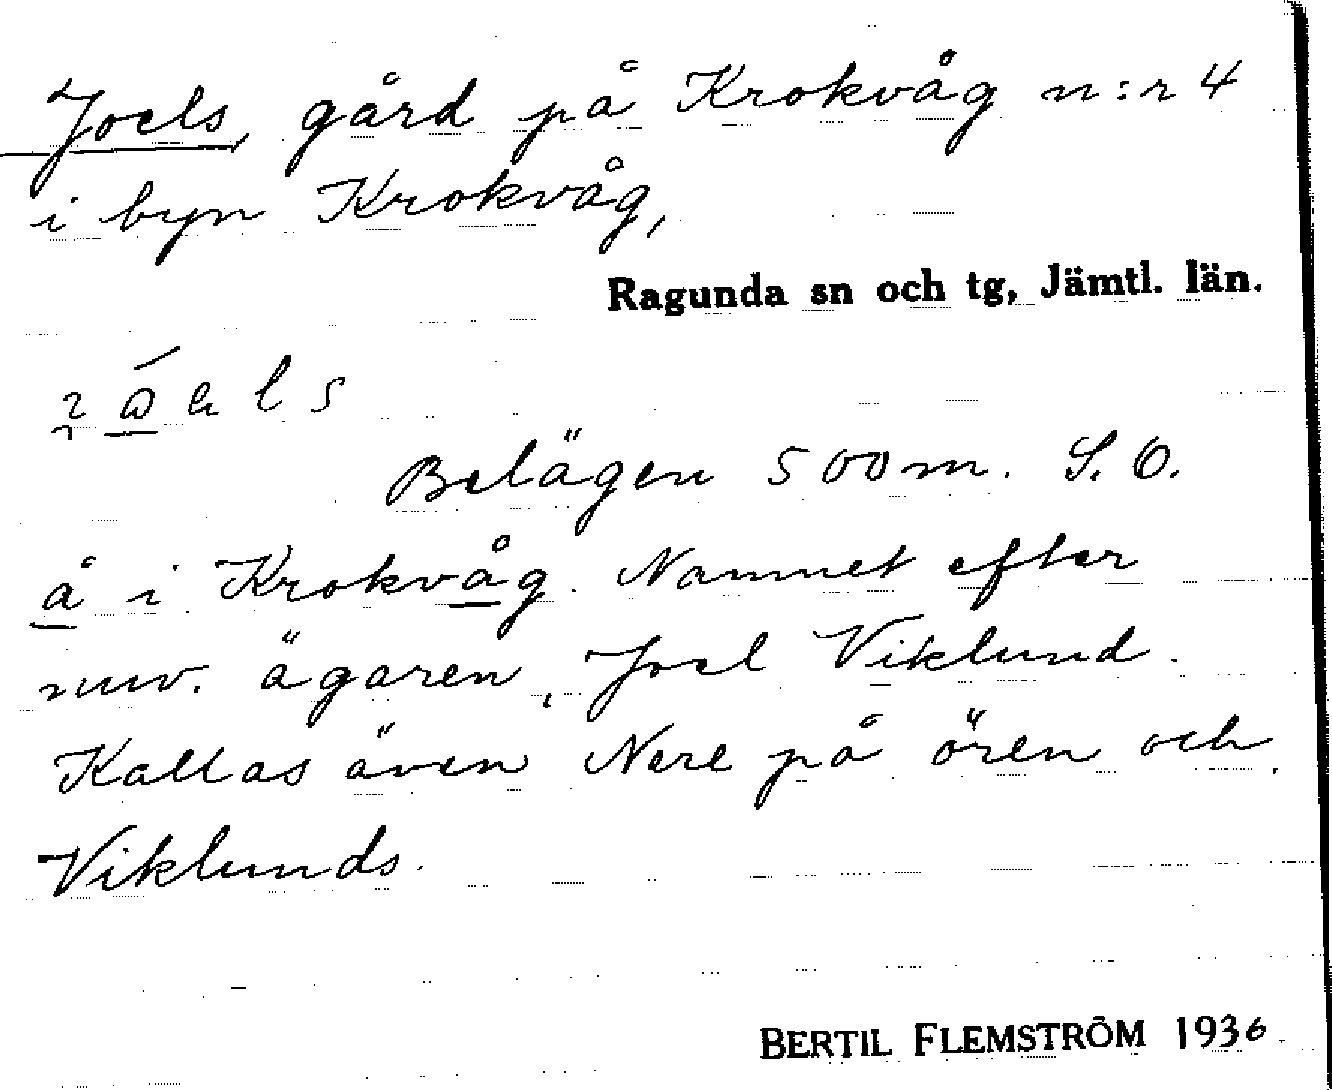 Joels, gård på Krokvåg n:r 4
i byn Krokvåg,
Ragunda sn och tg, Jämtl. län.
Belägen 500m. S.O.
å i Krokvåg. Namnet efter
nuv. ägaren, Joel Viklund.
Kallas även Nere på ören och
Viklunds.
BERTIL FLEMSTRÖM 1936